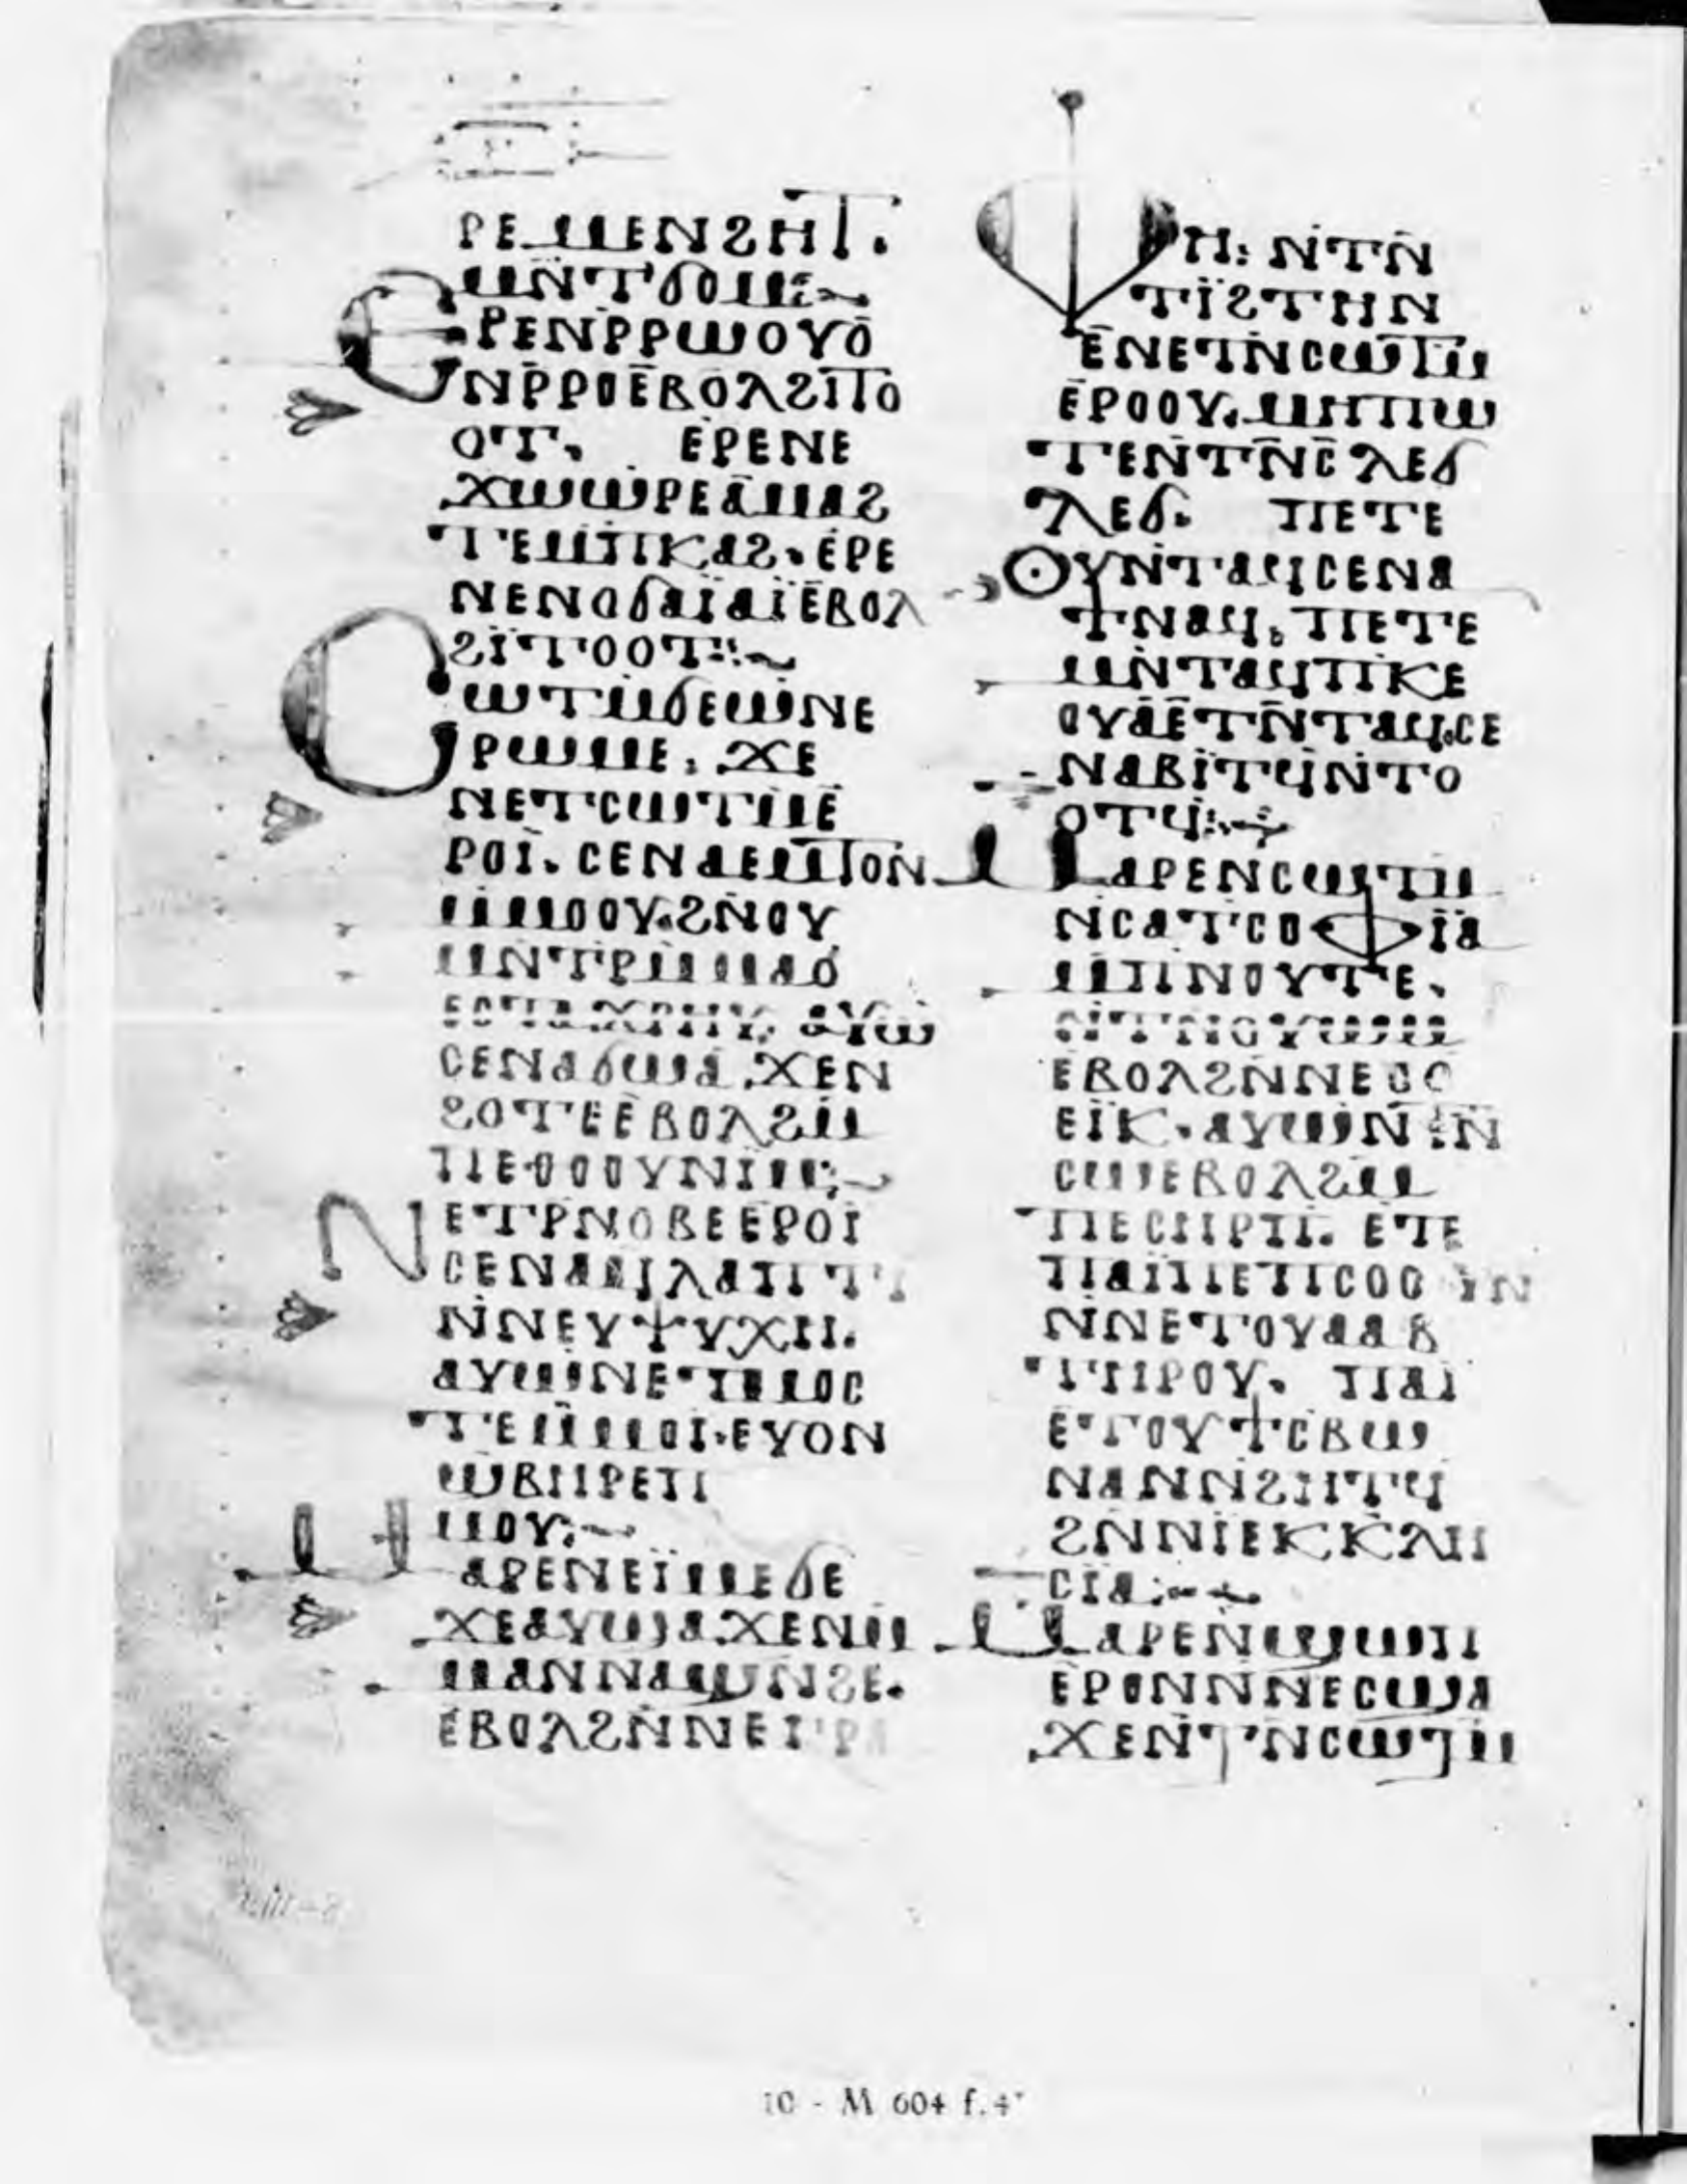 ⲣⲉⲙⲙⲉⲛϩⲏⲧ̅.
ⲙⲛ̅ⲧϭⲟⲙ:~
ⲉⲣⲉⲛⲣ̅ⲣⲱⲟⲩⲟ̅
ⲛⲣ̅ⲣⲟⲉ̅ⲃⲟⲗϩⲓⲧⲟ
ⲟⲧ. ⲉ̇ⲣⲉⲛⲉ
ϫⲱⲱⲣⲉⲁ̅ⲙⲁϩ
ⲧⲉⲙ̅ⲡⲕⲁϩ. ⲉ̇ⲣⲉ
ⲛⲉⲛⲟϭⲁⲓ̈ⲁⲓ̈ⲉ̅ⲃⲟⲗ
ϩⲓ̈ⲧⲟⲟⲧ:~
ⲥⲱⲧⲙ̅ϭⲉⲱ̇ⲛⲉ
ⲣⲱⲙⲉ. ϫⲉ
ⲛⲉⲧⲥⲱⲧⲙ̅ⲉ̅
ⲣⲟⲓ̈. ⲥⲉⲛⲁⲉⲙ̅ⲧⲟⲛ
ⲙ̇ⲙⲟⲟⲩ. ϩⲛ̅ⲟⲩ
ⲙⲛ̅ⲧⲣⲙ̅ⲙⲁⲟ̇
ⲉⲥⲧⲁϫⲣⲏⲩ. ⲁⲩⲱ
ⲥⲉⲛⲁϭⲱϣⲁ̇ϫⲉⲛ
ϩⲟⲧⲉⲉ̇ⲃⲟⲗϩⲙ̅
ⲡⲉⲑⲟⲟⲩⲛⲓⲙ:~
ⲛⲉⲧⲣ̅ⲛⲟⲃⲉⲉ̇ⲣⲟⲓ̈
ⲥⲉⲛⲁϣⲗⲁⲡⲧⲓ
ⲛ̇ⲛⲉⲩⲯⲩⲭⲏ.
ⲁⲩⲱⲛⲉⲧⲙⲟⲥ
ⲧⲉⲙ̅ⲙⲟⲓ. ⲉⲩⲟⲛ
ϣⲃⲏⲣⲉⲡ
ⲙⲟⲩ:~
ⲙⲁⲣⲉⲛⲉⲓ̈ⲙⲉϭⲉ
ϫⲉⲁⲩϣⲁϫⲉⲛⲙ̅
ⲙⲁⲛⲛⲁϣⲛ̇ϩⲉ.
ⲉ̇ⲃⲟⲗϩⲛ̅ⲛⲉⲓ̈ⲣⲁ
ⲫⲏ: ⲛ̇ⲧⲛ̅
ϯⲓ̈ϩⲧⲏⲛ
ⲉ̅ⲛⲉⲧⲛ̅ⲥⲱⲧⲙ̅
ⲉ̇ⲣⲟⲟⲩ. ⲙⲏⲡⲱ
ⲧⲉⲛ̅ⲧⲛ̅ⲥ̅ⲗⲉϭ
ⲗⲉϭ. ⲡⲉⲧⲉ
ⲟⲩⲛ̇ⲧⲁϥⲥⲉⲛⲁ
ϯⲛⲁϥ. ⲡⲉⲧⲉ
ⲙⲛ̅ⲧⲁϥⲡⲕⲉ
ⲟⲩⲁ̅ⲉ̅ⲧⲛ̅ⲧⲁϥ. ⲥⲉ
ⲛⲁⲃⲓ̈ⲧϥ̅ⲛ̇ⲧⲟ
ⲟⲧϥ̇:~
ⲙⲁⲣⲉⲛⲥⲱⲧⲙ̅
ⲛ̇ⲥⲁⲧⲥⲟⲫⲓ̈ⲁ
ⲙ̅ⲡⲛⲟⲩⲧⲉ.
ⲛ̇ⲧⲛ̅ⲟⲩⲱⲙ
ⲉ̇ⲃⲟⲗϩⲛ̅ⲛⲉⲥⲟ
ⲉⲓ̈ⲕ. ⲁⲩⲱⲛ̅ⲧⲛ̅
ⲥⲱⲉ̇ⲃⲟⲗϩⲙ̅
ⲡⲉⲥⲏⲣⲡ. ⲉⲧⲉ
ⲡⲁⲓ̈ⲡⲉⲡⲥⲟⲟⲩⲛ
ⲛ̇ⲛⲉⲧⲟⲩⲁⲁⲃ
ⲧⲏⲣⲟⲩ. ⲡⲁⲓ̈
ⲉⲧⲟⲩϯⲥⲃⲱ
ⲛⲁⲛⲛ̇ϩⲏⲧϥ̅
ϩⲛ̅ⲛⲉⲕⲕⲗⲏ
ⲥⲓⲁ:~
ⲙⲁⲣⲉⲛ̅ϣⲱⲡ
ⲉ̇ⲣⲟⲛⲛ̇ⲛⲉⲥϣⲁ
ϫⲉⲛ̇ⲧⲛ̅ⲥⲱⲧⲙ̅
10 - M 604 f.4ᵛ